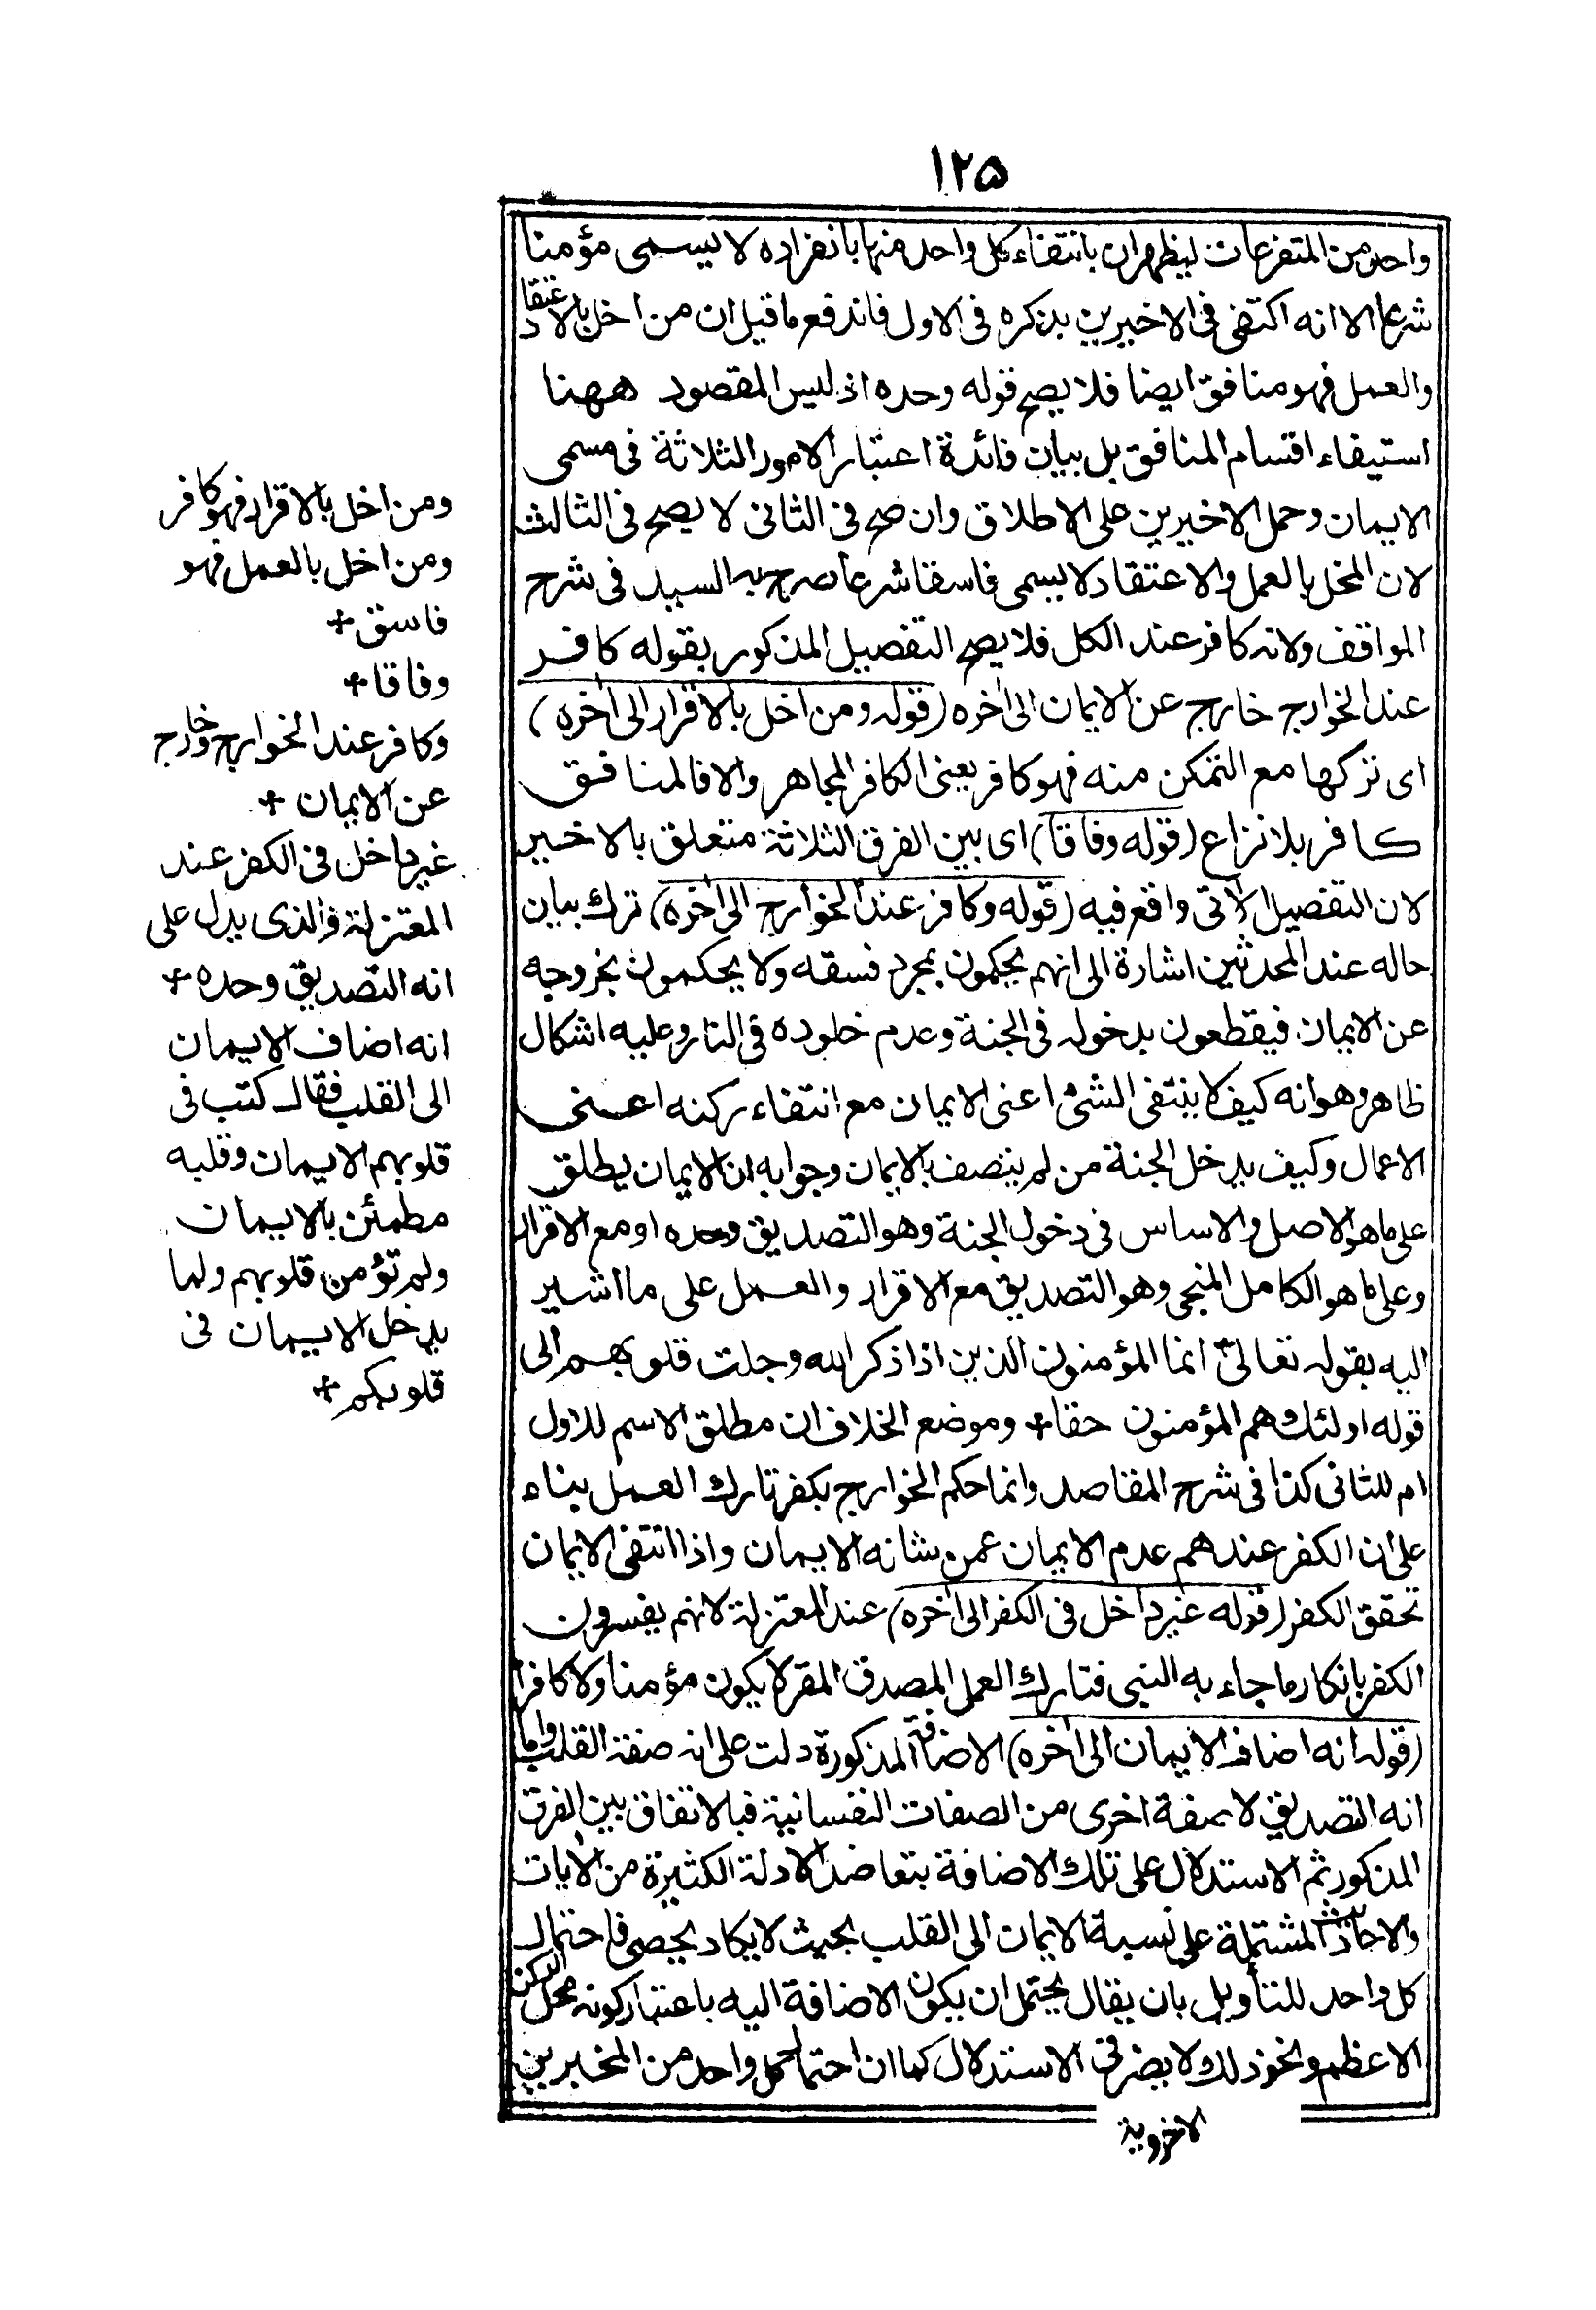 ١٢٥
واحد من المتفرعات ليظهر ان بانتفاء كل واحد منها بانفراده لا يسمى مؤمنا
شرعا الا انه اكتفى فى الاخيرين بذكره فى الاول فاندفع ما قيل ان من اخل بالاعتقاد
والعمل فهو منافق ايضا فلا يصح قوله وحده اذ ليس المقصود ههنا
استيفاء اقسام المنافق بل بيان فائدة اعتبار الامور الثلاثة فى مسمى
الايمان وحمل الاخيرين على الاطلاق وان صح فى الثانى لا يصح فى الثالث
لان المخل بالعمل والاعتقاد لا يسمى فاسقا شرعا صرح به السيد فى شرح
المواقف ولانه كافر عند الكل فلا يصح التفصيل المذكور بقوله كافر
عند الخوارج خارج عن الايمان الى اخره (قوله ومن اخل بالاقرار الى اخره)
اى تركها مع التمكن منه فهو كافر يعنى الكافر المجاهر والا فالمنافق
كافر بلا نزاع (قوله وفاقا) اى بين الفرق الثلاثة متعلق بالاخير
لان التفصيل الاتى واقع فيه (قوله وكافر عند الخوارج الى اخره) ترك بيان
حاله عند المحدثين اشارة الى انهم يحكمون بمجرد فسقه ولا يحكمون بخروجه
عن الايمان فيقطعون بدخوله فى الجنة وعدم خلوده فى النار وعليه اشكال
ظاهر وهو انه كيف لا ينتفى الشئ اعنى الايمان مع انتفاء ركنه اعنى
الاعمال وكيف يدخل الجنة من لم يتصف بالايمان وجوابه ان الايمان يطلق
على ما هو الاصل والاساس فى دخول الجنة وهو التصديق وحده او مع الاقرار
وعلى ما هو الكامل المنجى وهو التصديق مع الاقرار والعمل على ما اشير
اليه بقوله تعالى انما المؤمنون الذين اذا ذكر الله وجلت قلوبهم الى
قوله اولئك هم المؤمنون حقا + وموضع الخلاف ان مطلق الاسم للاول
ام للثانى كذا فى شرح المقاصد وانما حكم الخوارج بكفر تارك العمل بناء
على ان الكفر عندهم عدم الايمان عمن شانه الايمان واذا انتفى الايمان
تحقق الكفر (قوله غير داخل فى الكفر الى اخره) عند المعتزلة لانهم يفسرون
الكفر بانكار ما جاء به النبى فتارك العمل المصدق المقر لا يكون مؤمنا ولا كافرا
(قوله انه اضاف الايمان الى اخره) الاضافة المذكورة دلت على انه صفة القلب واما
انه التصديق لا صفة اخرى من الصفات النفسانية فبالاتفاق بين الفرق
المذكور ثم الاستدلال على تلك الاضافة بتعاضد الادلة الكثيرة من الايات
والاحاديث المشتملة على نسبة الايمان الى القلب بحيث لا يكاد يحصى فاحتمال
كل واحد للتأويل بان يقال يحتمل ان يكون الاضافة اليه باعتبار كونه محل الركن
الاعظم ونحو ذلك لا يضر فى الاستدلال كما ان احتمال كل واحد من المخبرين
الاخروية
ومن اخل بالاقرار فهو كافر
ومن اخل بالعمل فهو
فاسق +
وفاقا +
وكافر عند الخوارج وخارج
عن الايمان +
غير داخل فى الكفر عند
المعتزلة والذى يدل على
انه التصديق وحده +
انه اضاف الايمان
الى القلب فقال كتب فى
قلوبهم الايمان وقلبه
مطمئن بالايمان
ولم تؤمن قلوبهم ولما
يدخل الايمان فى
قلوبكم +